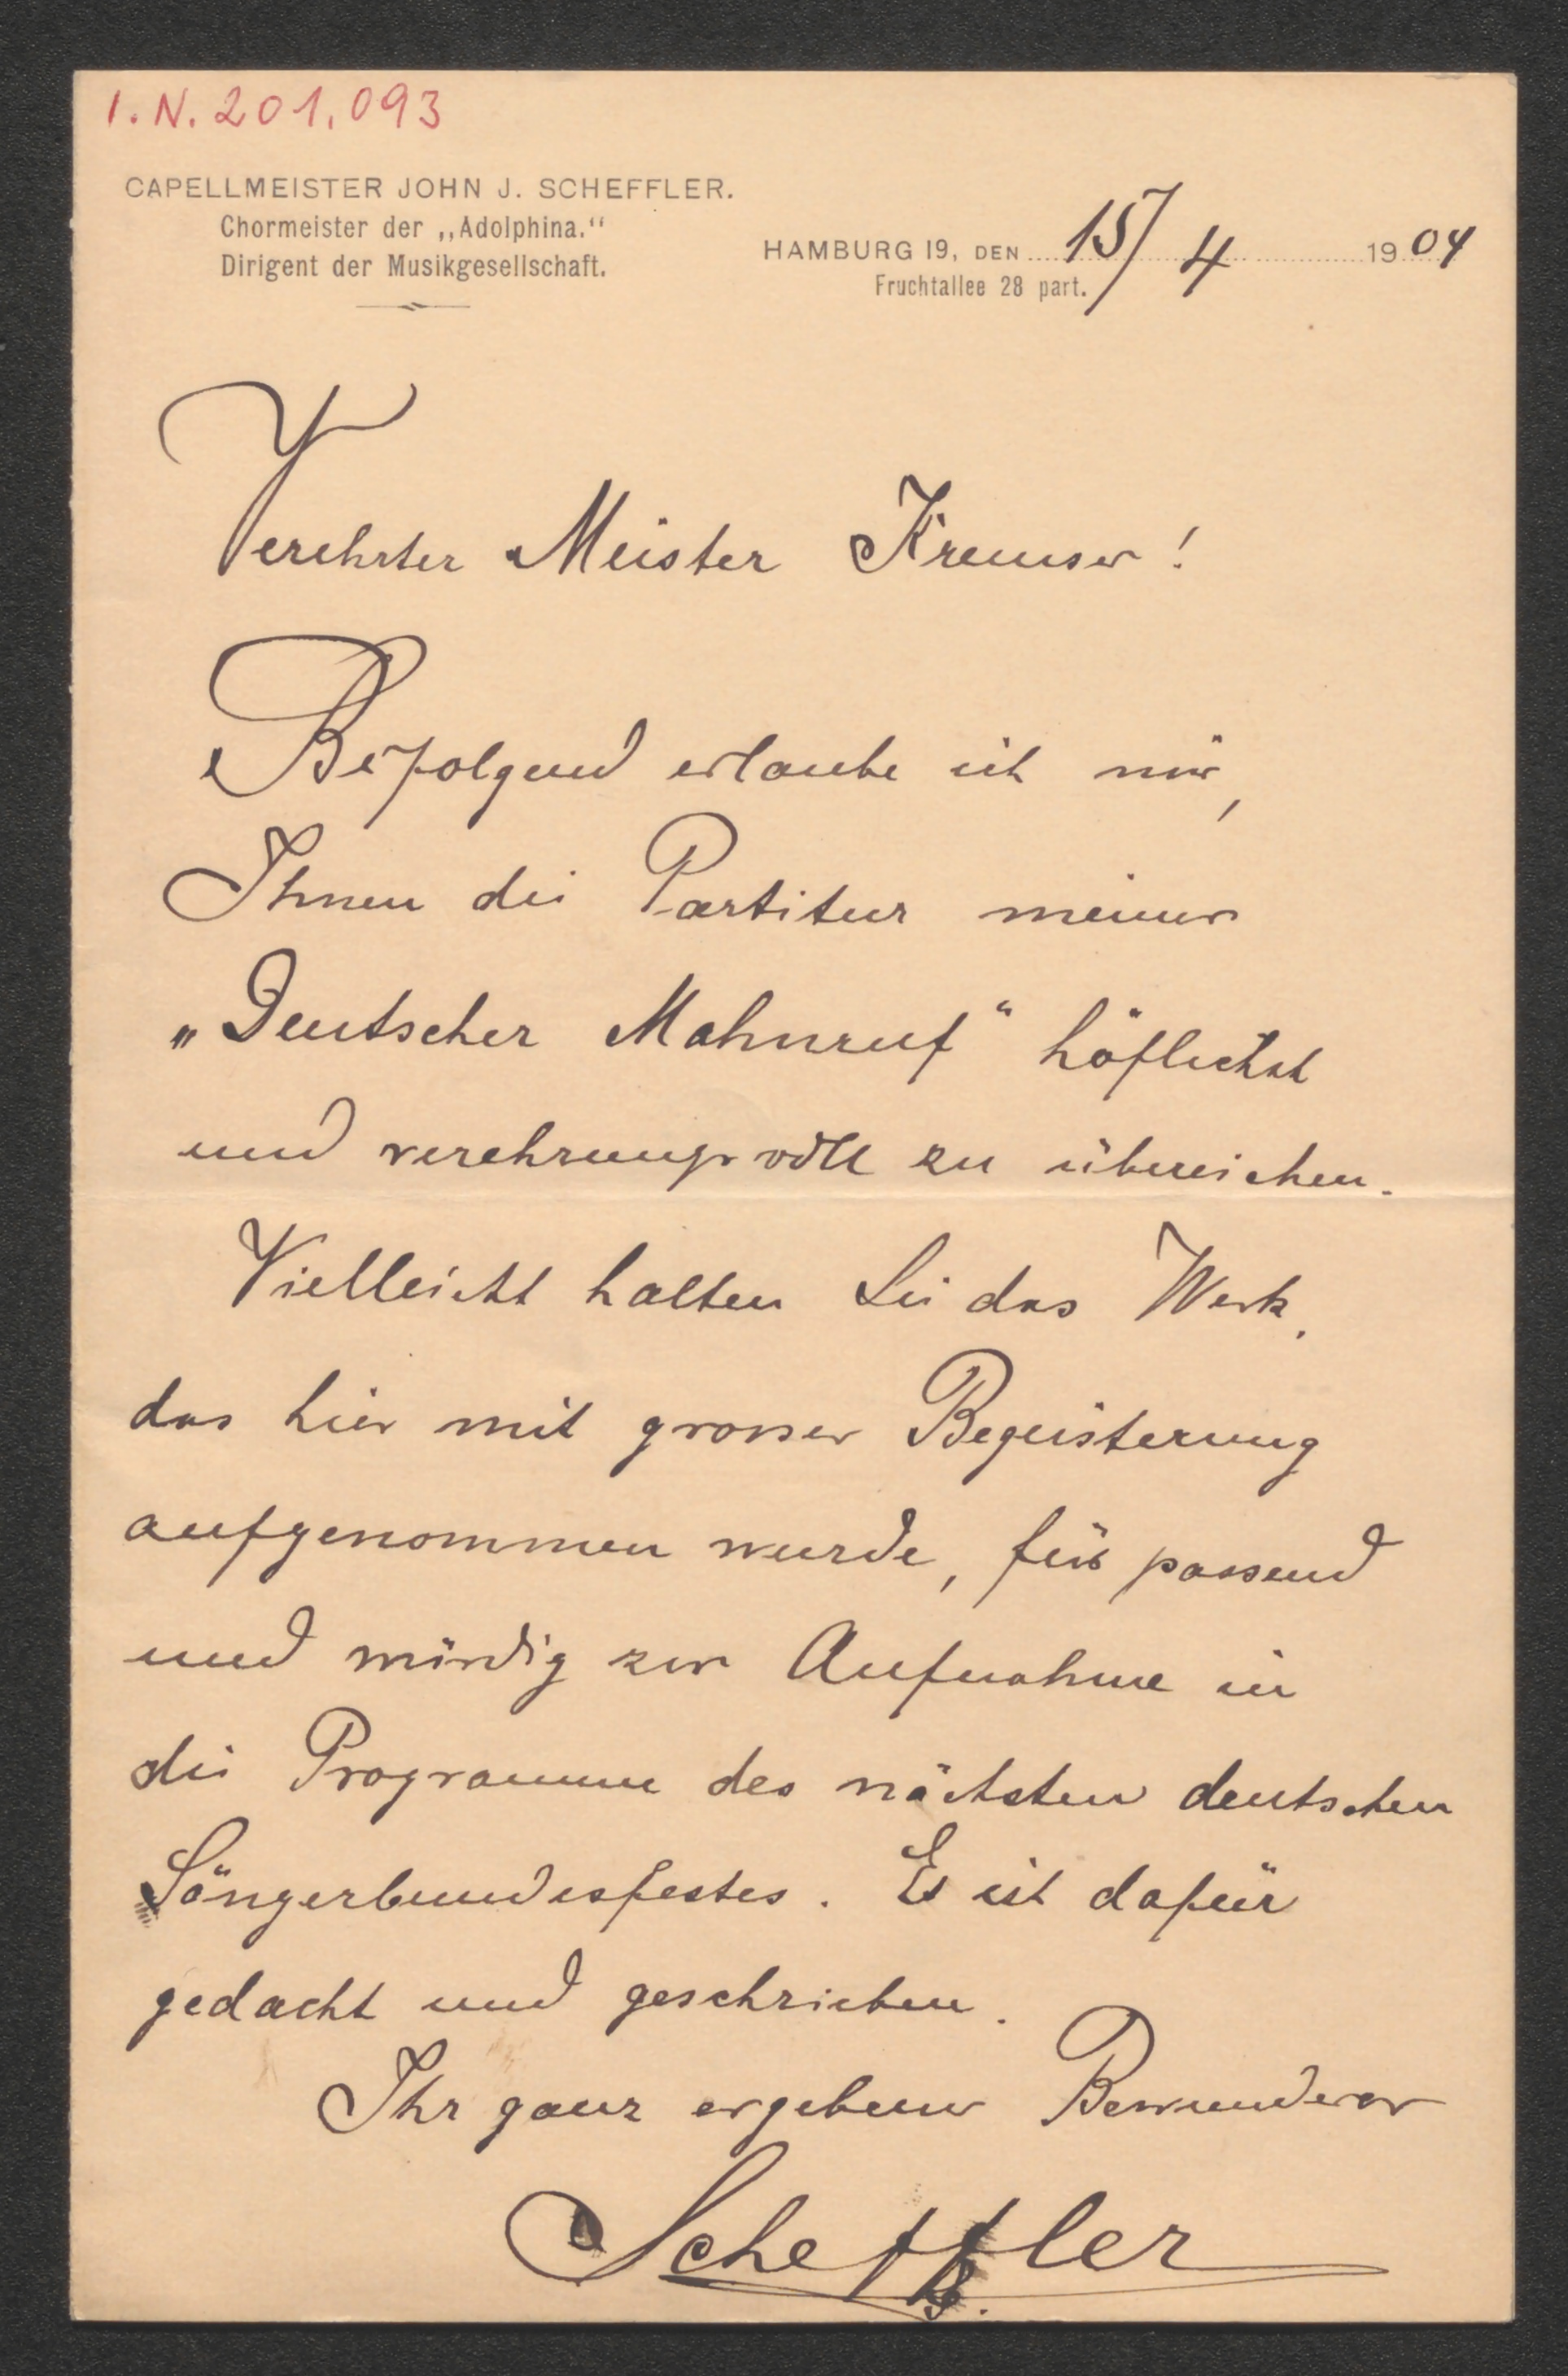 I.N. 201.093
CAPELLMEISTER JOHN J. SCHEFFLER.
Chormeister der „Adolphina.“
Dirigent der Musikgesellschaft.
HAMBURG 19, DEN 15/4 1904
Fruchtallee 28 part.
Verehrter Meister Kremser!
Beifolgend erlaube ich mir,
Ihnen die Partitur meiner
„Deutscher Mahnruf“ höflichst
und verehrungsvoll zu übereichen.
Vielleicht halten Sie das Werk,
das hier mit grosser Begeisterung
aufgenommen wurde, für passend
und würdig zur Aufnahme in
die Programme des nächsten deutschen
Sängerbundesfestes. Es ist dafür
gedacht und geschrieben.
Ihr ganz ergebener Bewunderer
Scheffler